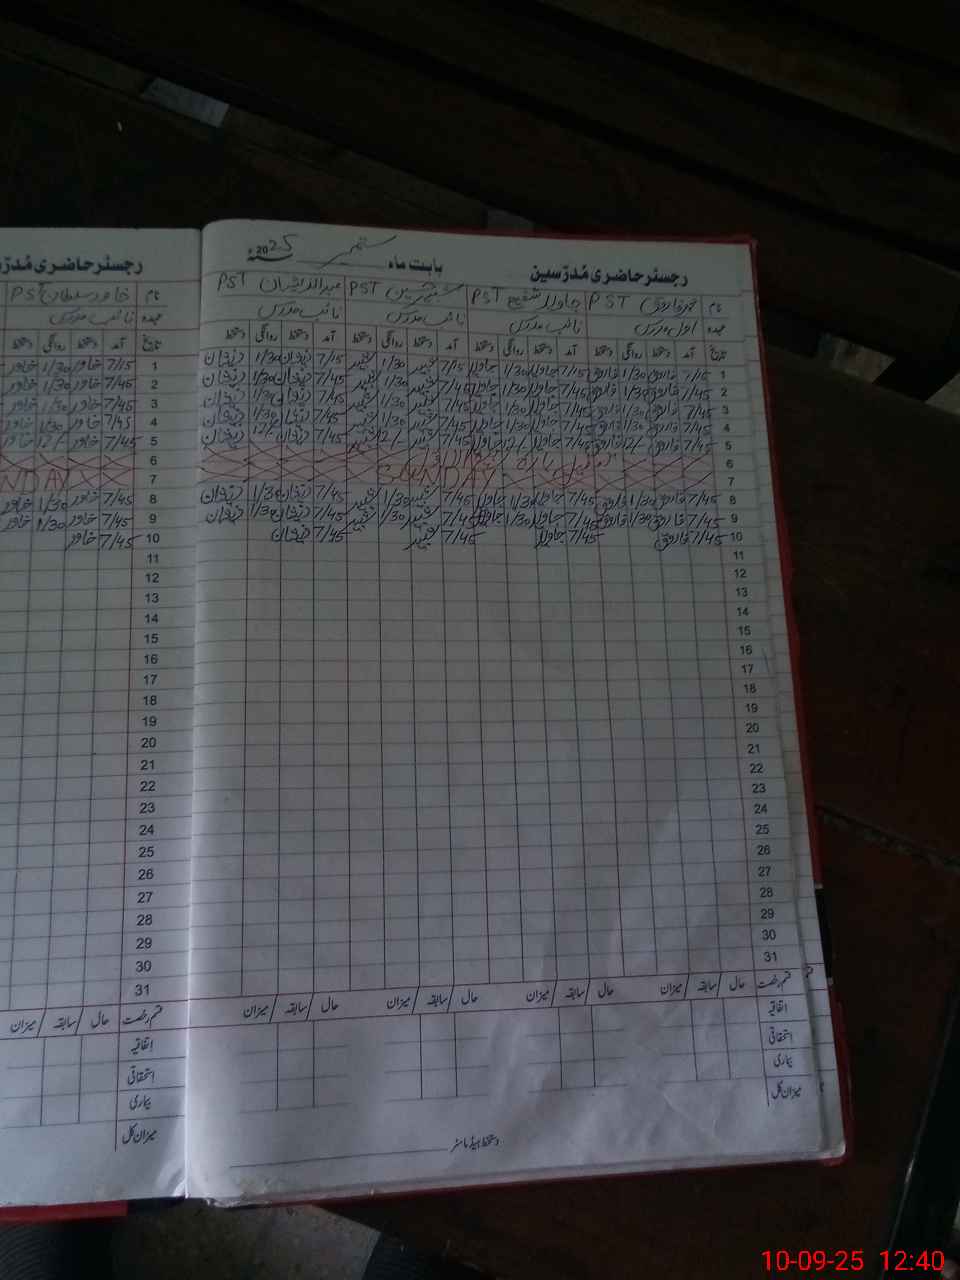 رجسٹر حاضری مُدرّسین بابت ماہ ستمبر 2025ء
نام محمد فاروق PST جاوید شفیع PST PST عبداللہ ذیشان PST
عہدہ اول مدرس نائب مدرس نائب مدرس نائب مدرس
تاریخ آمد دستخط روانگی دستخط آمد دستخط روانگی دستخط آمد دستخط روانگی دستخط آمد دستخط روانگی دستخط
1 7/15 فاروق 1/30 فاروق 7/15 جاوید 1/30 جاوید 7/15 1/30 7/15 ذیشان 1/30 ذیشان
2 7/45 فاروق 1/30 فاروق 7/45 جاوید 1/30 جاوید 7/45 1/30 7/45 ذیشان 1/30 ذیشان
3 7/45 فاروق 1/30 فاروق 7/45 جاوید 1/30 جاوید 7/45 1/30 7/45 ذیشان 1/30 ذیشان
4 7/45 فاروق 1/30 فاروق 7/45 جاوید 1/30 جاوید 7/45 1/30 7/45 ذیشان 1/30 ذیشان
5 7/45 فاروق 12/- فاروق 7/45 جاوید 12/- جاوید 7/45 12/- 7/45 ذیشان 12/- ذیشان
6
7 SUNDAY
8 7/45 فاروق 1/30 فاروق 7/45 جاوید 1/30 جاوید 7/45 1/30 7/45 ذیشان 1/30 ذیشان
9 7/45 فاروق 1/30 فاروق 7/45 جاوید 1/30 جاوید 7/45 1/30 7/45 ذیشان 1/30 ذیشان
10 7/45 فاروق 7/45 جاوید 7/45 7/45 ذیشان
11
12
13
14
15
16
17
18
19
20
21
22
23
24
25
26
27
28
29
30
31
قسم رخصت حال / سابقہ / میزان حال / سابقہ / میزان حال / سابقہ / میزان حال / سابقہ / میزان
اتفاقیہ
استحقاقی
بیماری
میزان کل
دستخط ہیڈ ماسٹر
رجسٹر حاضری مُدرّس
نام خاور سلطان PST
عہدہ نائب مدرس
تاریخ آمد دستخط روانگی دستخط
1 7/15 خاور 1/30 خاور
2 7/45 خاور 1/30 خاور
3 7/45 خاور 1/30 خاور
4 7/45 خاور 1/30 خاور
5 7/45 خاور 12/- خاور
6
7 NDAY
8 7/45 خاور 1/30 خاور
9 7/45 خاور 1/30 خاور
10 7/45 خاور
11
12
13
14
15
16
17
18
19
20
21
22
23
24
25
26
27
28
29
30
31
قسم رخصت حال / سابقہ / میزان
اتفاقیہ
استحقاقی
بیماری
میزان کل
10-09-25 12:40